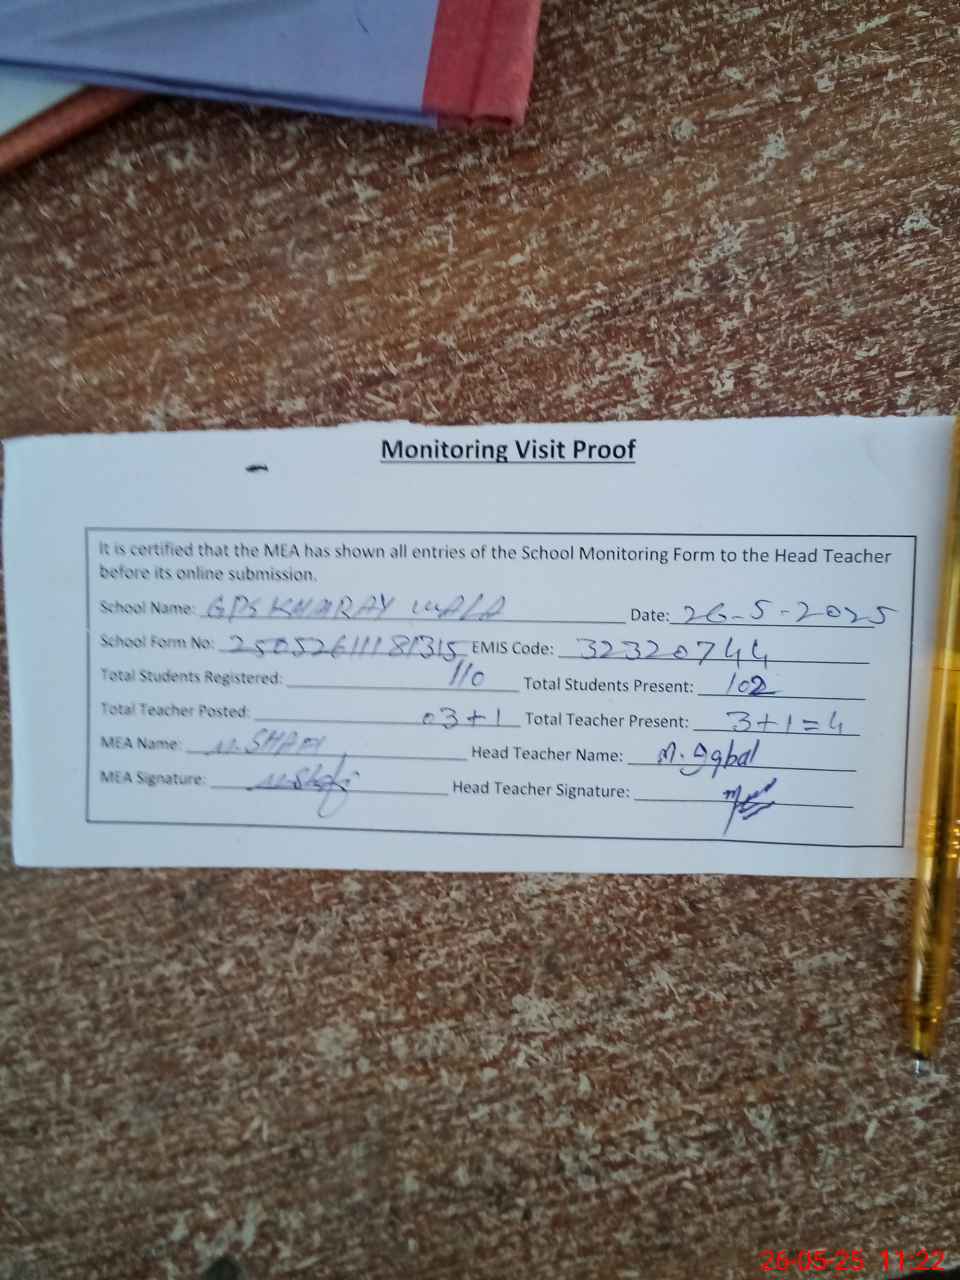 Monitoring Visit Proof
It is certified that the MEA has shown all entries of the School Monitoring Form to the Head Teacher
before its online submission.
School Name: GPS KHARAY WALA Date: 26-5-2025
School Form No: EMIS Code: 32320744
Total Students Registered: 110 Total Students Present: 102
Total Teacher Posted: 03+1 Total Teacher Present: 3+1=4
MEA Name: M. SHAFI Head Teacher Name: M. Iqbal
MEA Signature: M Shafi Head Teacher Signature:
26-05-25 11:22